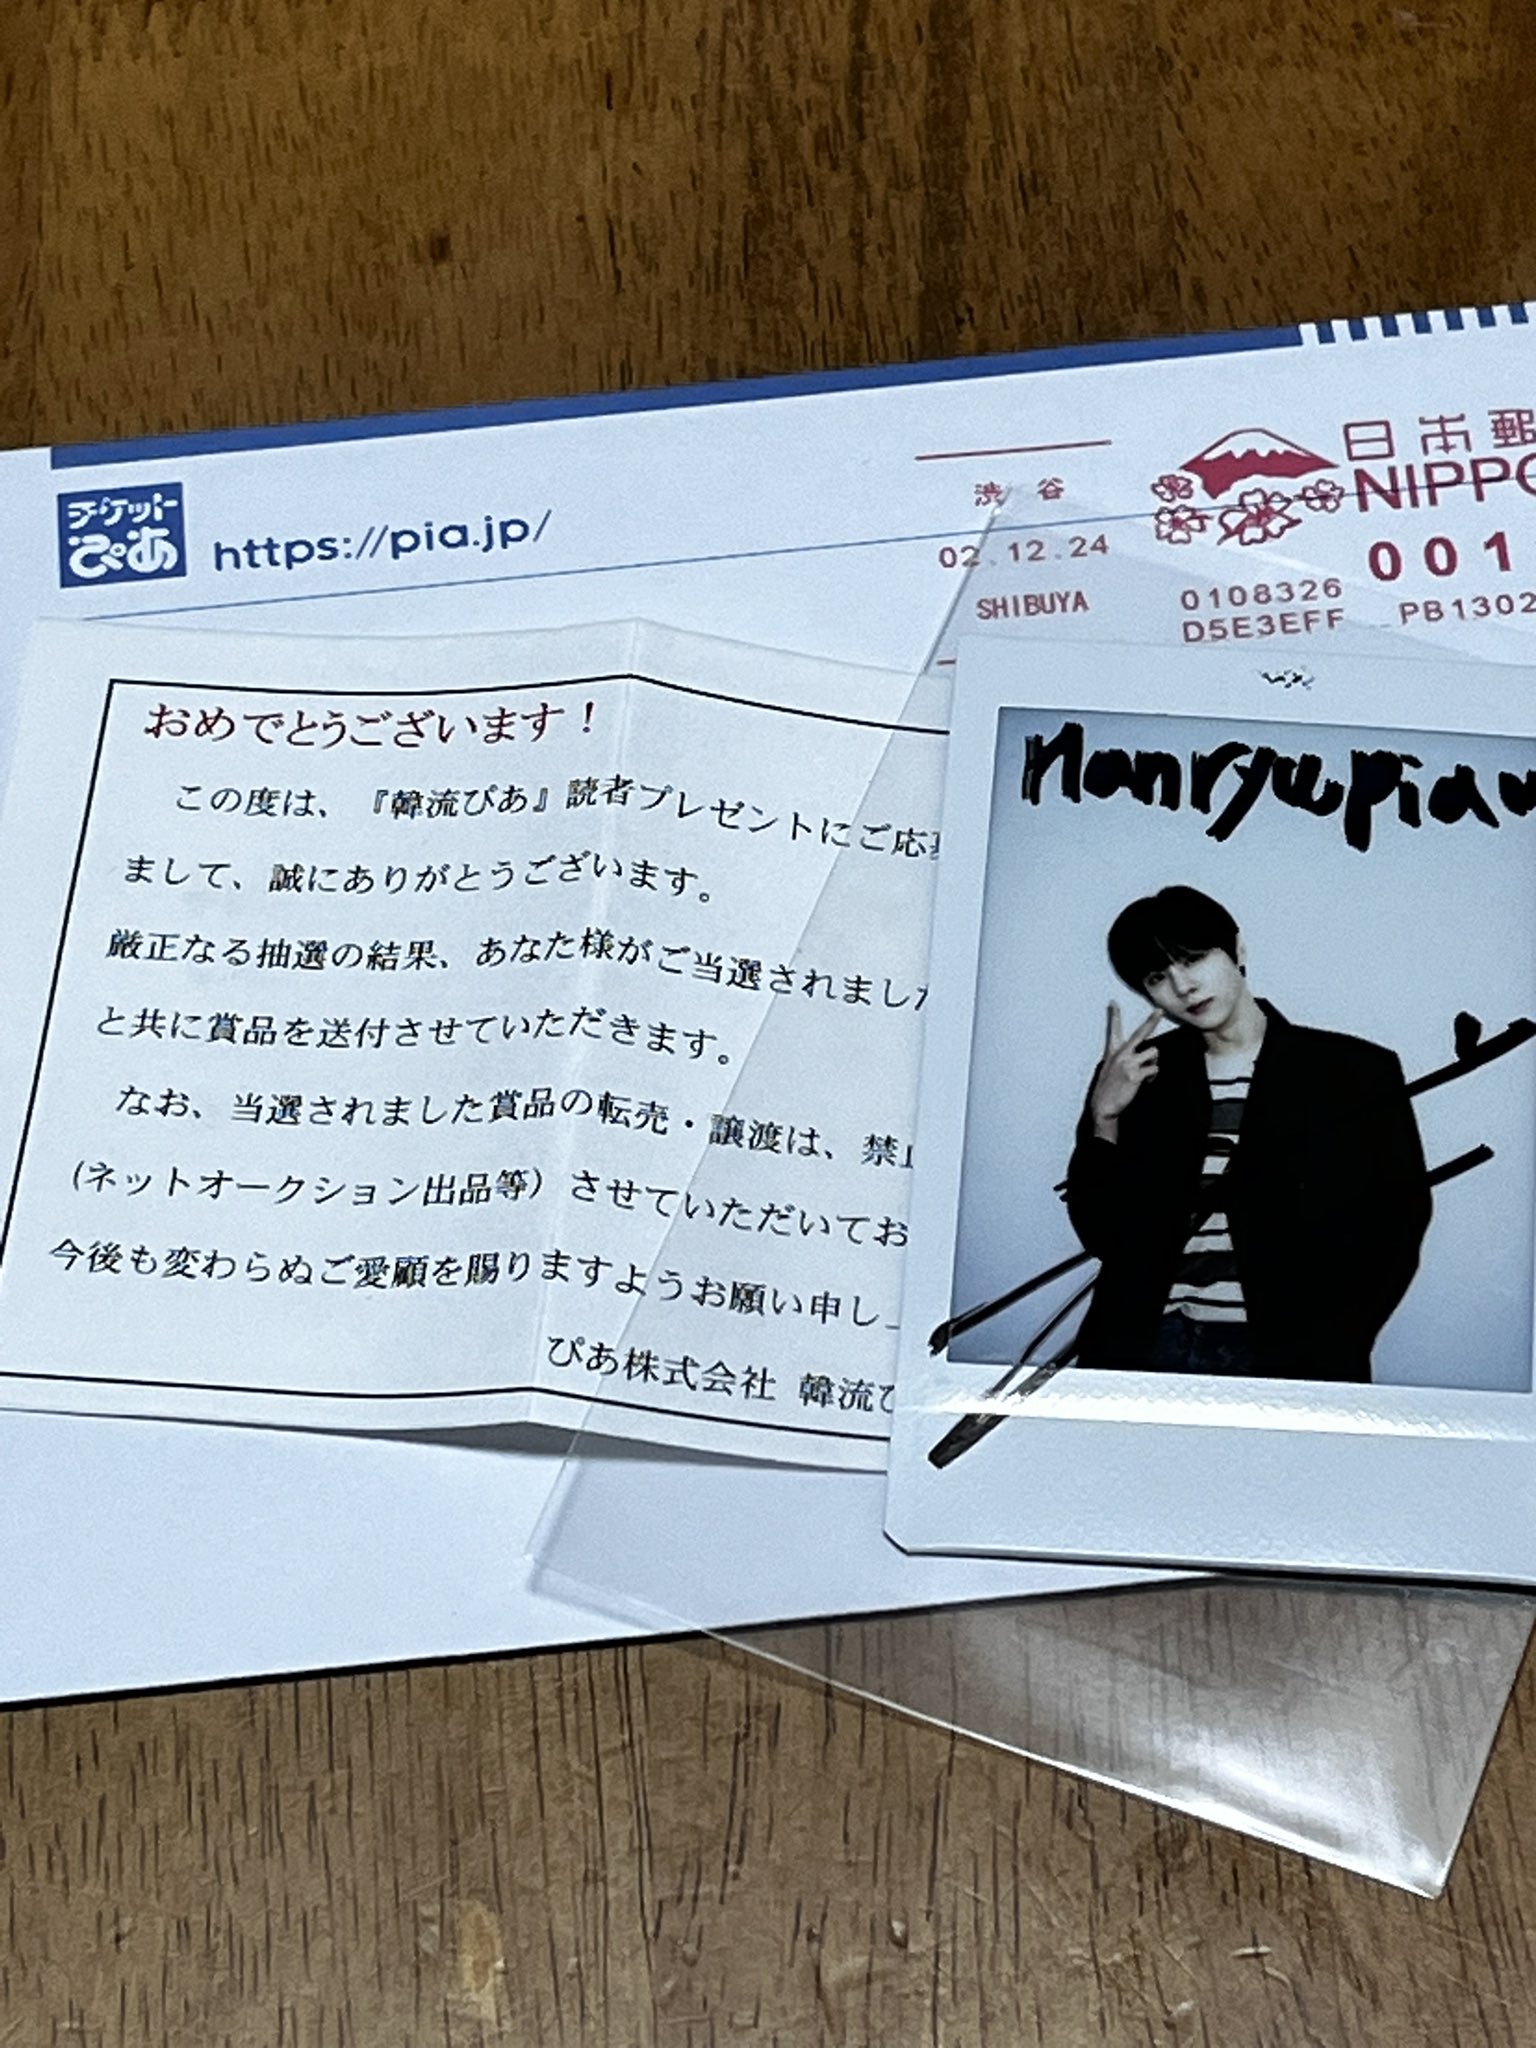 チケット
ぴあ
https://pia.jp/
渋谷
02.12.24
SHIBUYA
日本郵
NIPPO
001
0108326
D5E3EFF PB1302
おめでとうございます！
この度は、『韓流ぴあ』読者プレゼントにご応募
まして、誠にありがとうございます。
厳正なる抽選の結果、あなた様がご当選されました
と共に賞品を送付させていただきます。
なお、当選されました賞品の転売・譲渡は、禁止
(ネットオークション出品等）させていただいてお
今後も変わらぬご愛顧を賜りますようお願い申し
ぴあ株式会社 韓流ぴ
Hanryupia